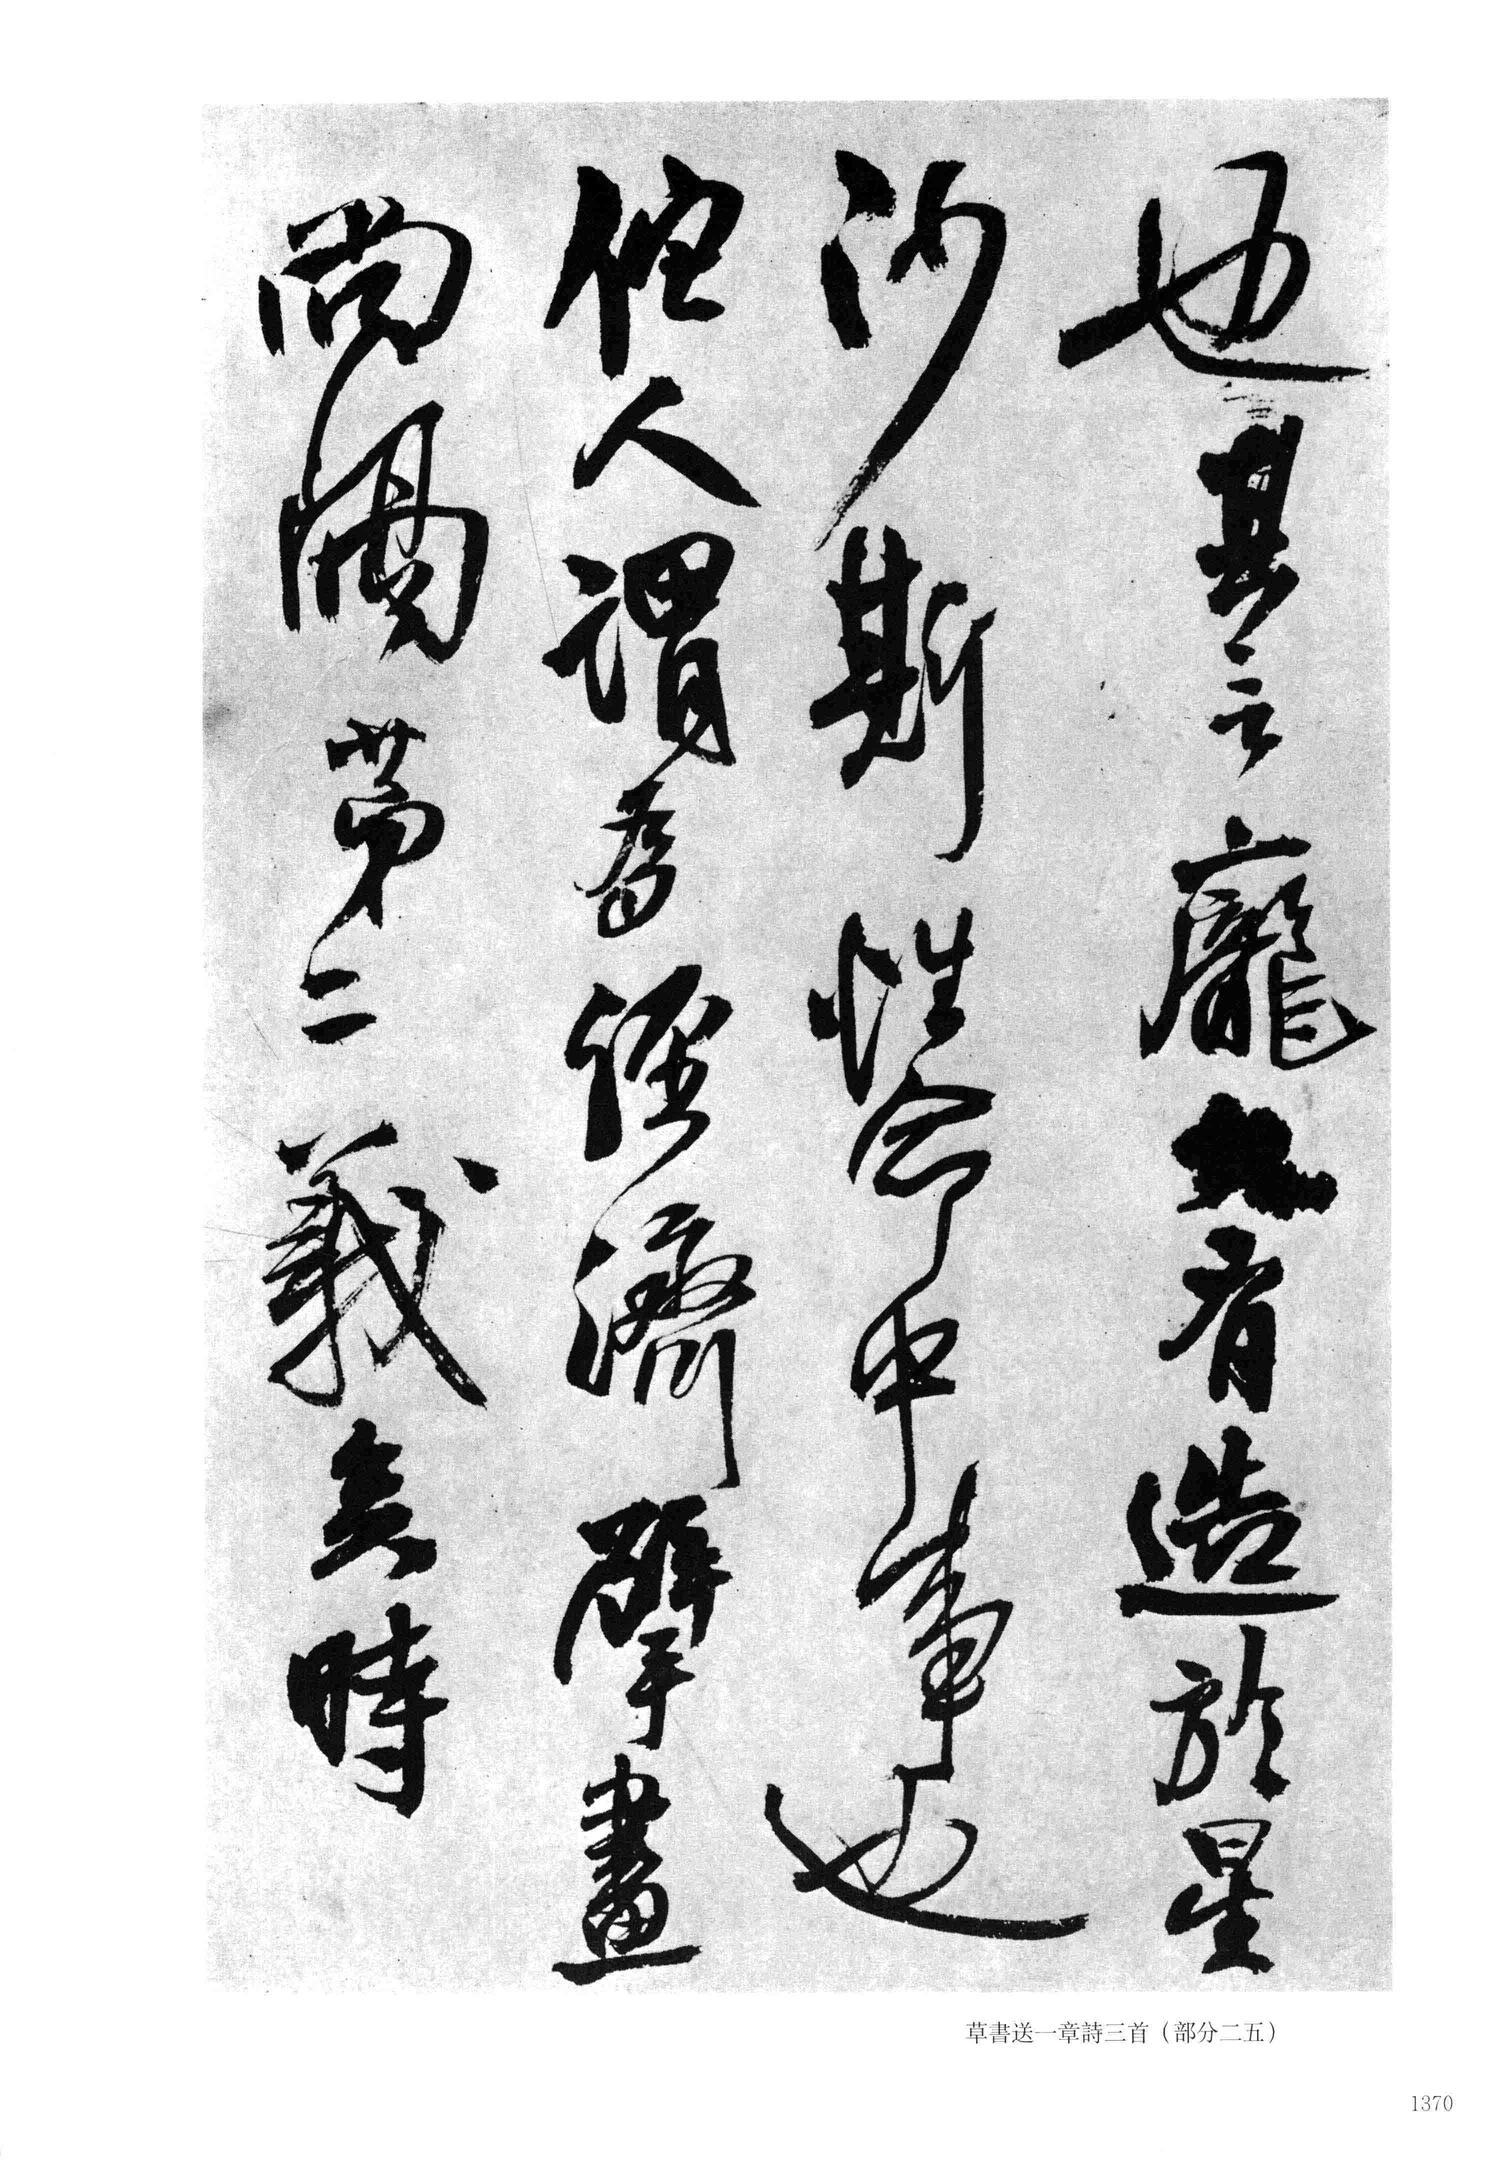 也其云龐有造於星
沙斯性命中事也
他人謂為經濟擘畫
尚隔第二義矣時
草書送一章詩三首（部分二五）
1370